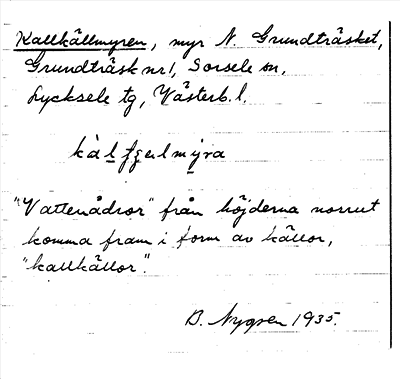 Kallkällmyren, myr N. Grundträsket,
Grundträsk nr 1, Sorsele sn,
Lycksele tg, Västerb. l.
"Vattenådror" från höjderna norrut
komma fram i form av källor,
"kallkällor".
B. Nygren 1935.